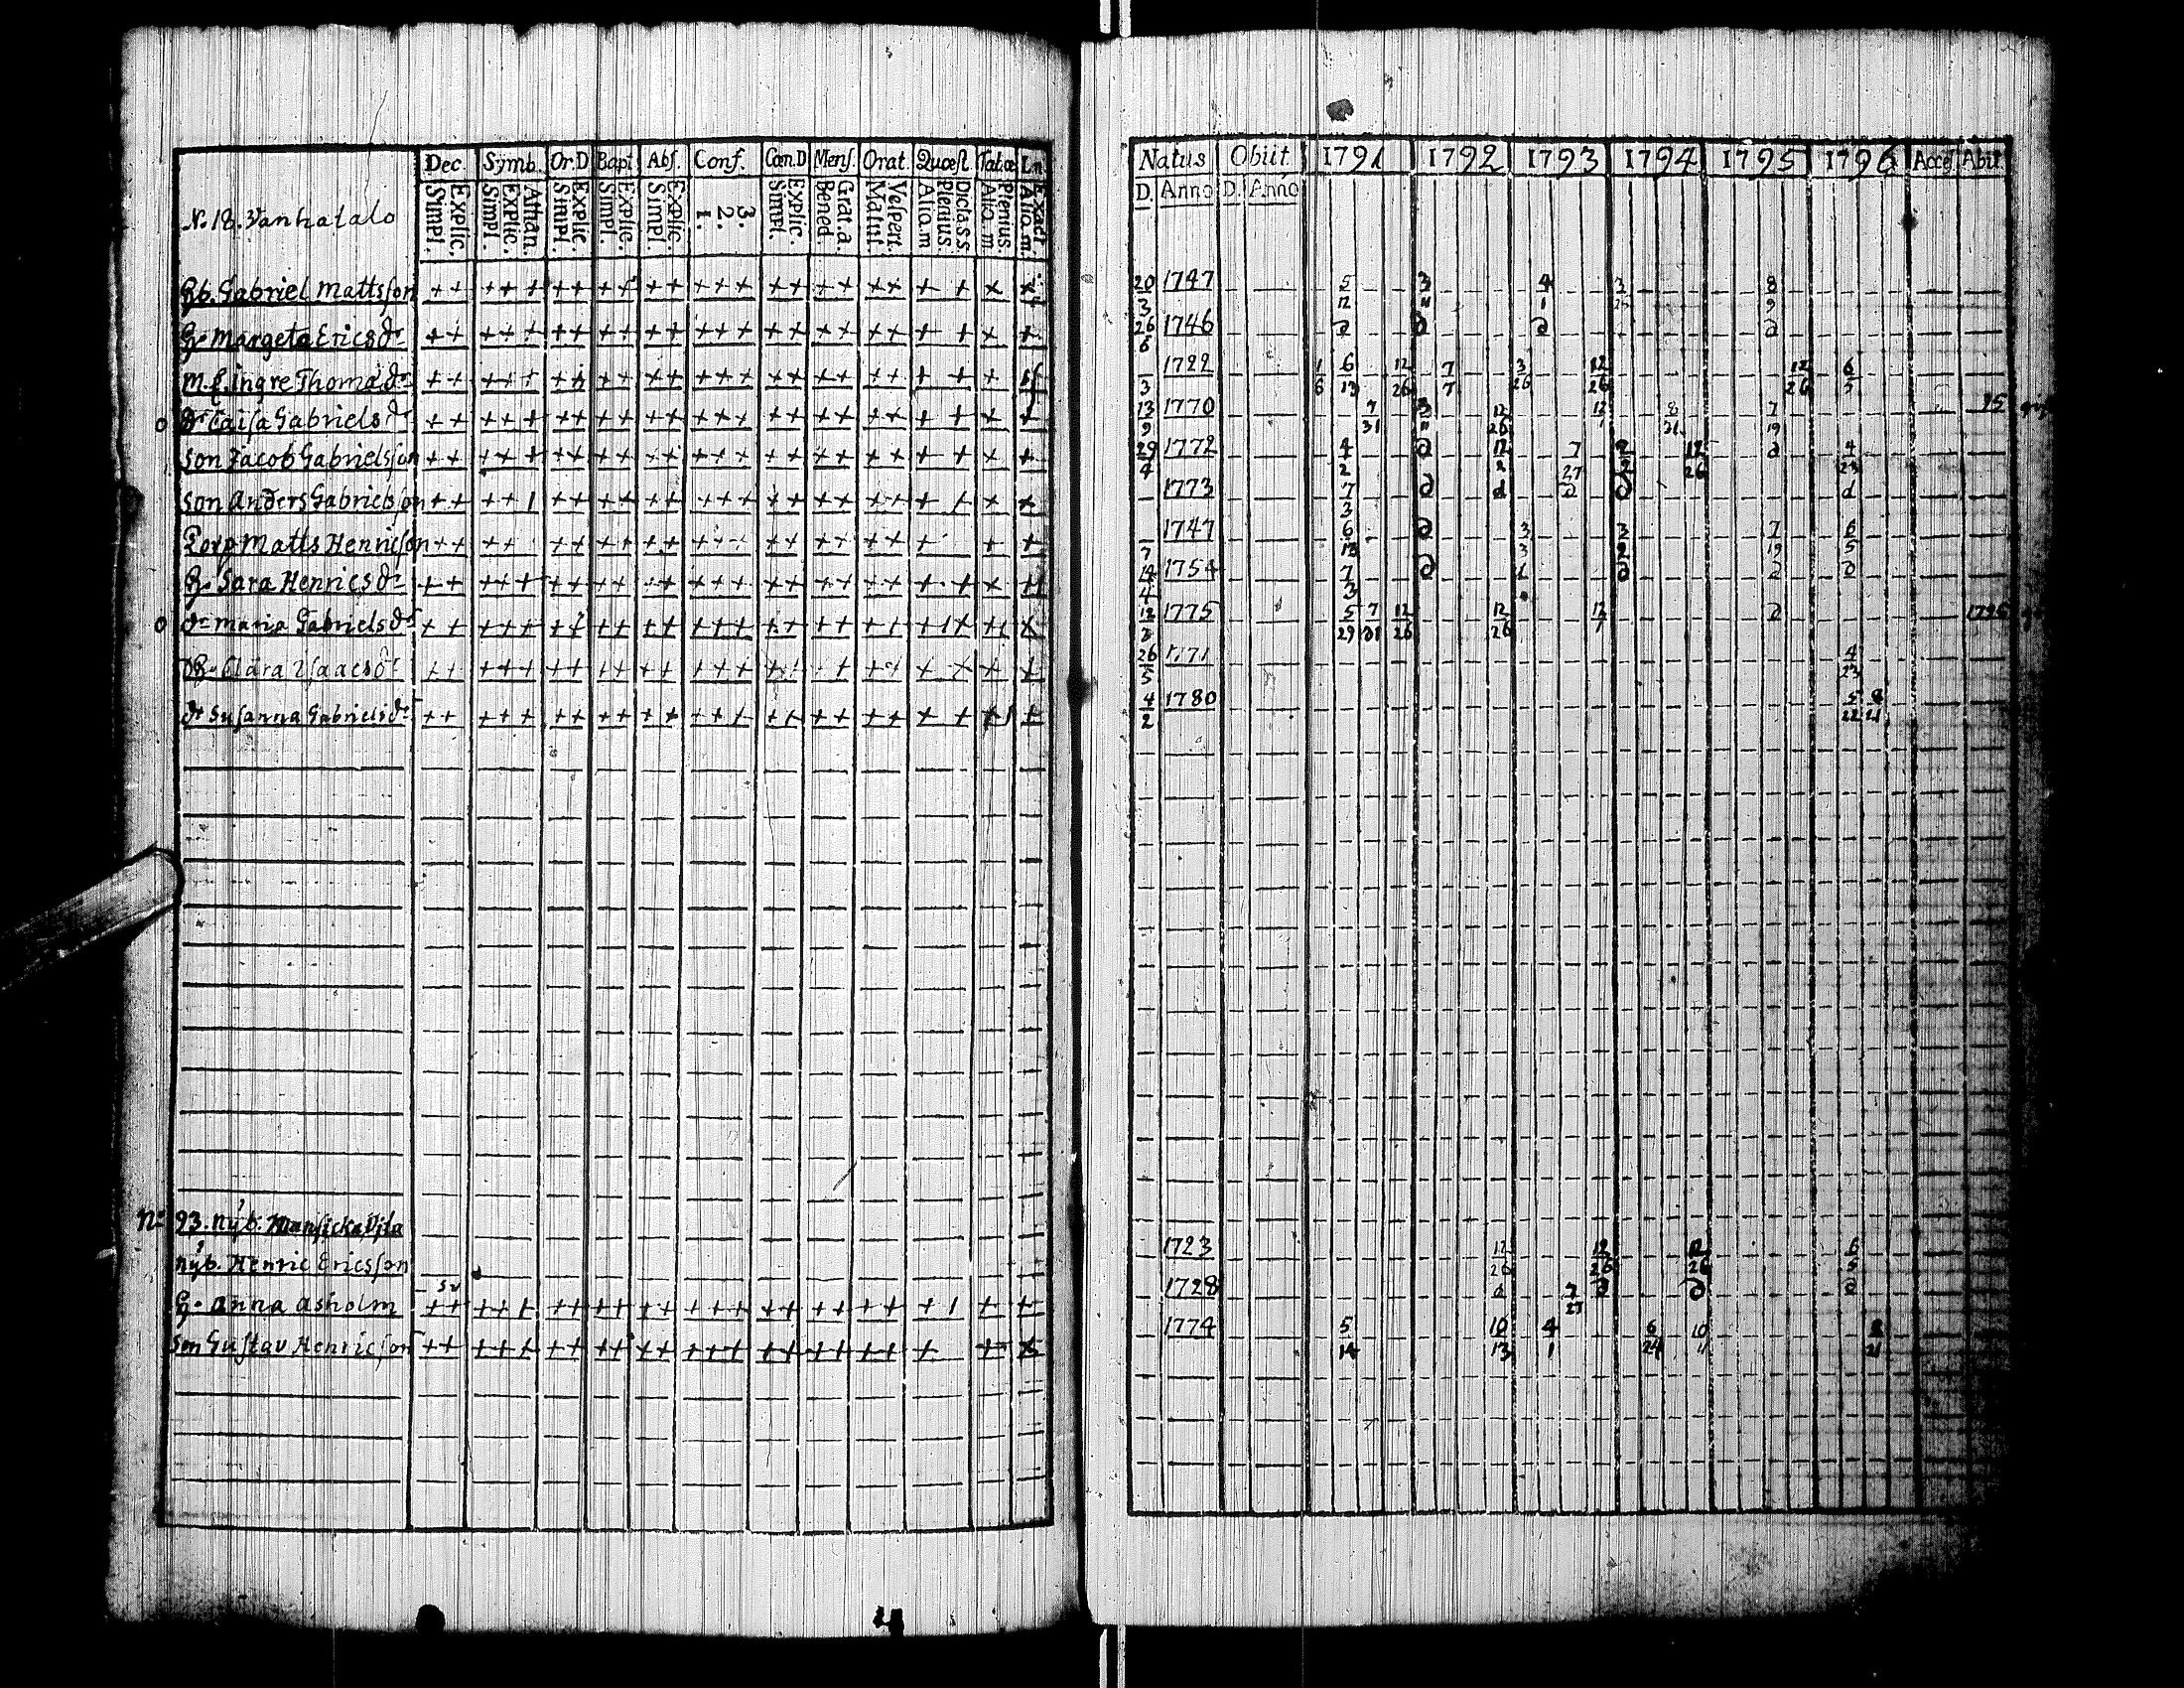 Dec. Symb. Or.D Bapt. Abs. Conf. Cœn.D Mens. Orat. Quæst. Tabæ
Simpl. Explic. Simpl. Explic. Athan. Simpl. Explic. Simpl. Explic. Simpl. Explic. 1. 2. 3. Simpl. Explic. Bened. Grat. a. Matut. Vespert. Aliq. m. Plenius. Dicta s.s. Aliq. m. Plenius. Aliq. m. Exact
N. 18. Vanhatalo
Gb. Gabriel Mattsson
H. Margeta Erics dr
M. f. ingre Thoma dr
dr Caisa Gabriels dr
Son Jacob Gabrielsson
Son Anders Gabrielsson
Corp Matts Henricson
H. Sara Henrics dr
dr Maria Gabriels dr
Clara Isaacs dr
dr Susanna Gabriels dr
No 93. nyb.
nyb. Henric Ericsson
H. anna asholm
Son Gustav Henricson
Natus Obiit 1791 1792 1793 1794 1795 1796 Acce Abit
D. Anno D. Anno
20/3 1747 5/12 3/11 4/1 8/9
26/6 1746 d d d d
1722 1/6 6/13 12/26 7/7 3/26 12/26 12/26 6/5
13/9 1770 7/31 12/26 12/1 8/31 7/19 95
29/4 1772 4/2 d 12/2 7/27 2/2 12/26 d 4/23
1773 7/3 d d d d d
1747 6/12 d 3/3 3/2 7/19 6/5
14/4 1754 7/3 d d d d
12/3 1775 5/29 7/31 12/26 12/26 12/1 d 1796
26/5 1771 4/23
4/2 1780 5/22 8/21
1723 12/26 12/26 12/26 6/5
1728 d 7/27 d d d
1774 5/14 10/13 4/1 6/24 10/11 8/21